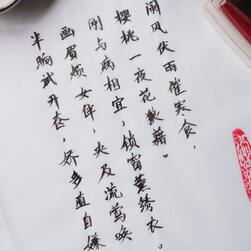 阑风伏雨催寒食，
樱桃一夜花狼藉。
刚与病相宜，锁窗薰绣衣。
画眉烦女伴，央及流莺唤
半晌试开奁，娇多直自嫌